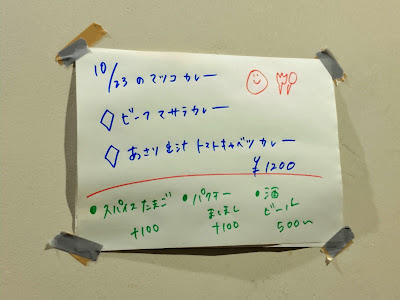 10/23のマツコカレー
◇ビーフマサラカレー
◇あさり生汁トマトキャベツカレー
¥1200
●スパイスたまご
+100
●パクチー
ましまし
+100
●酒
ビール
500~